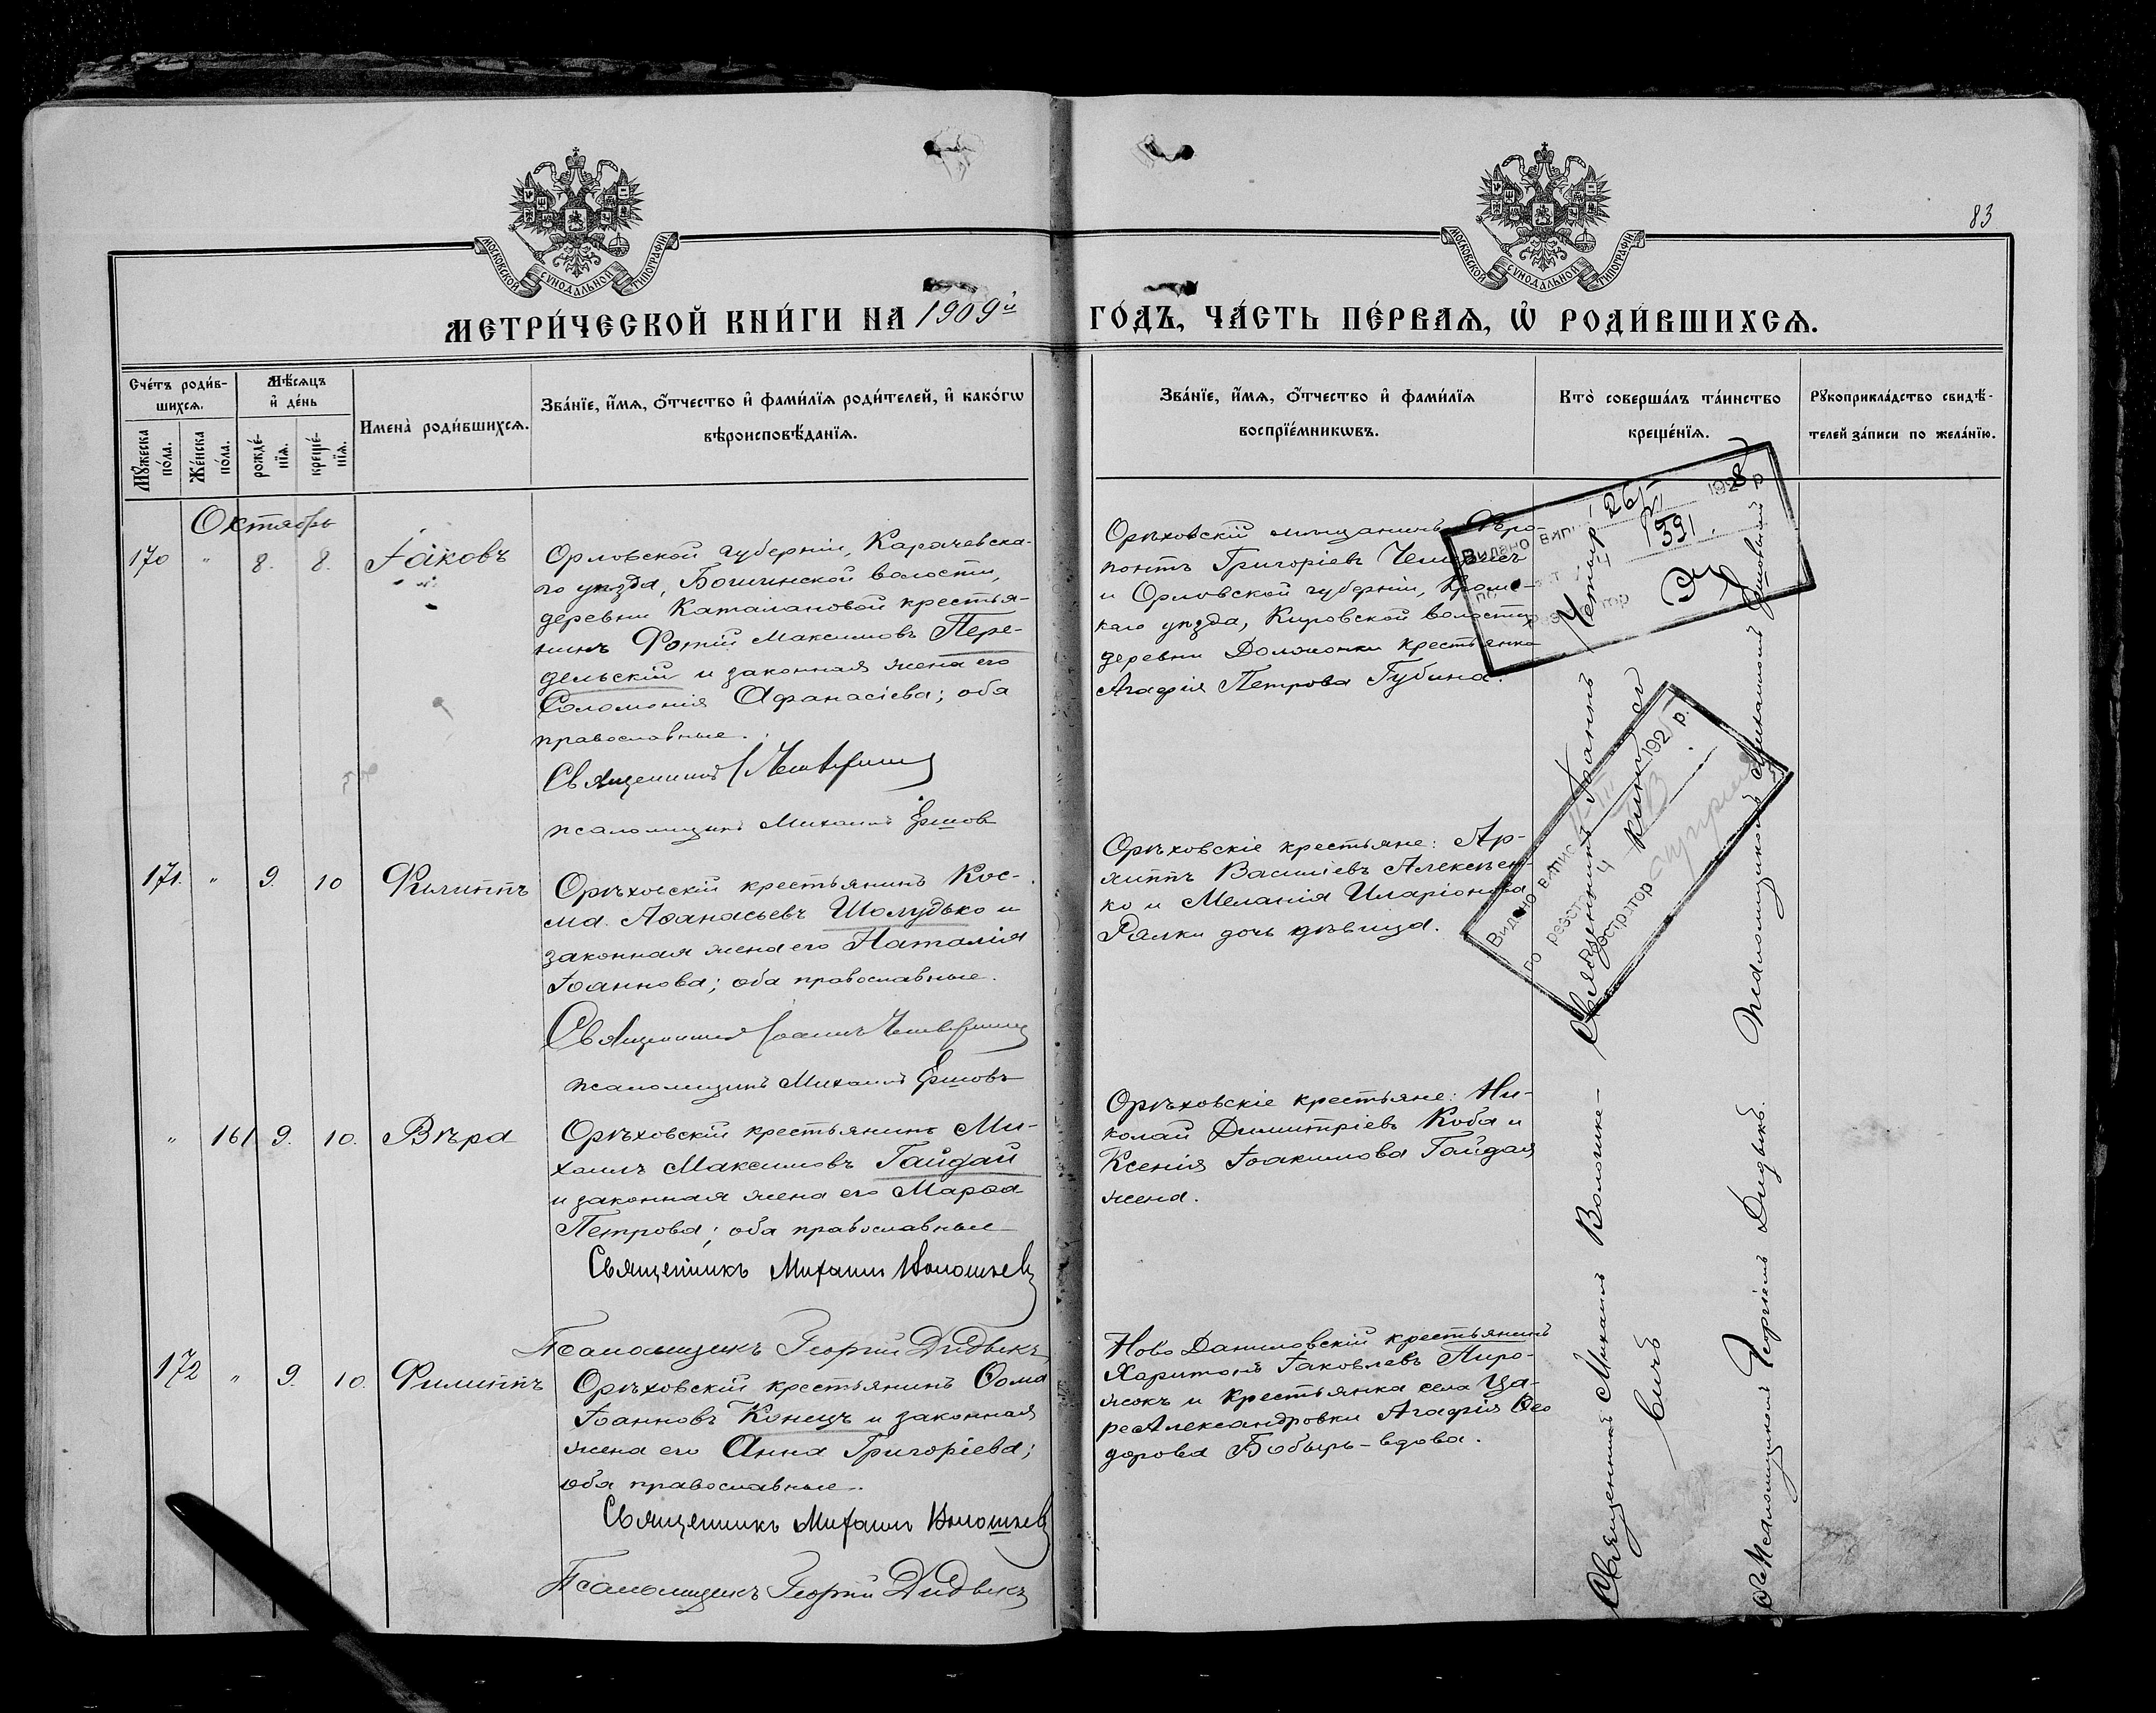 83
МОСКОВСКОЙ СѴНОДАЛЬНОЙ ТИПОГРАФІИ
МОСКОВСКОЙ СѴНОДАЛЬНОЙ ТИПОГРАФІИ
МЕТРИ́ЧЕСКОЙ КНИ́ГИ НА 1909й ГО́ДЪ, ЧА́СТЬ ПЕ́РВАЯ, Ѡ҆ РОДИ́ВШИХСЯ.
Сче́тъ роди́в-
шихся.
Мꙋ́жеска по́ла.
Же́нска по́ла.
Мѣ́сяцъ
и҆ де́нь
рожде́-
нїя.
креще́-
нїя.
Имена̀ роди́вшихся.
Зва́нїе, и҆́мя, о҆́тчество и҆ фами́лїя роди́телей, и҆ како́гѡ
вѣроисповѣ́данїя.
Зва́нїе, и҆́мя, о҆́тчество и҆ фами́лїя
воспрїе́мникѡвъ.
Кто̀ соверша́лъ та́инство
креще́нїя.
Рꙋкоприкла́дство свидѣ́-
телей за́писи по жела́нїю.
Октябрь
170 " 8. 8. Іаковъ
Орловской губерніи, Карачевска-
го уѣзда,
волости,
деревни Каталановой крестья-
нинъ Фотій Максимовъ Пере-
дельскій и законная жена его
Соломонія Афанасіева; оба
православные.
Священникъ
псаломщикъ Михаилъ Ершов
Орѣховскій мѣщанинъ
понтъ Григоріевъ
и Орловской губерніи, Кром-
каго уѣзда, Кировской волости
деревни Должонки крестьянка
Агафія Петрова Губина.
171. " 9. 10 Филиппъ
Орѣховскій крестьянинъ Кос-
ма Аѳанасьевъ Шолудько и
законная жена его Наталія
Іоаннова; оба православные.
Священникъ Іоаннъ
псаломщикъ Михаилъ Ершовъ
Орѣховскіе крестьяне: Ар-
хиппъ Василіевъ Алексѣен-
ко и Меланія Иларіонова
Ралки дочь дѣвица.
" 161 9. 10. Вѣра
Орѣховскій крестьянинъ Ми-
хаилъ Максимовъ Гайдай
и законная жена его Марѳа
Петрова; оба православные
Священникъ Михаилъ
Псаломщикъ Георгій Дидыкъ
Орѣховскіе крестьяне: Ни-
колай Димитріевъ Коба и
Ксенія Іоакимова Гайдая
жена.
172 " 9. 10. Филиппъ
Орѣховскій крестьянинъ Ѳома
Іоанновъ Конецъ и законная
жена его Анна Григоріева;
оба православные.
Священникъ Михаилъ
Псаломщикъ Георгій Дидыкъ
Ново Даниловскій крестьянинъ
Харитонъ Іаковлевъ Пиро-
жокъ и крестьянка села Ца-
реАлександровки Агафія Ѳео
дорова Бобырь - вдова.
Священникъ Іоаннъ
Псаломщикъ Михаилъ Ершовый
Священникъ Михаилъ
Псаломщикъ Георгій Дидыкъ.
Видано
26
391
Видано
192
р.